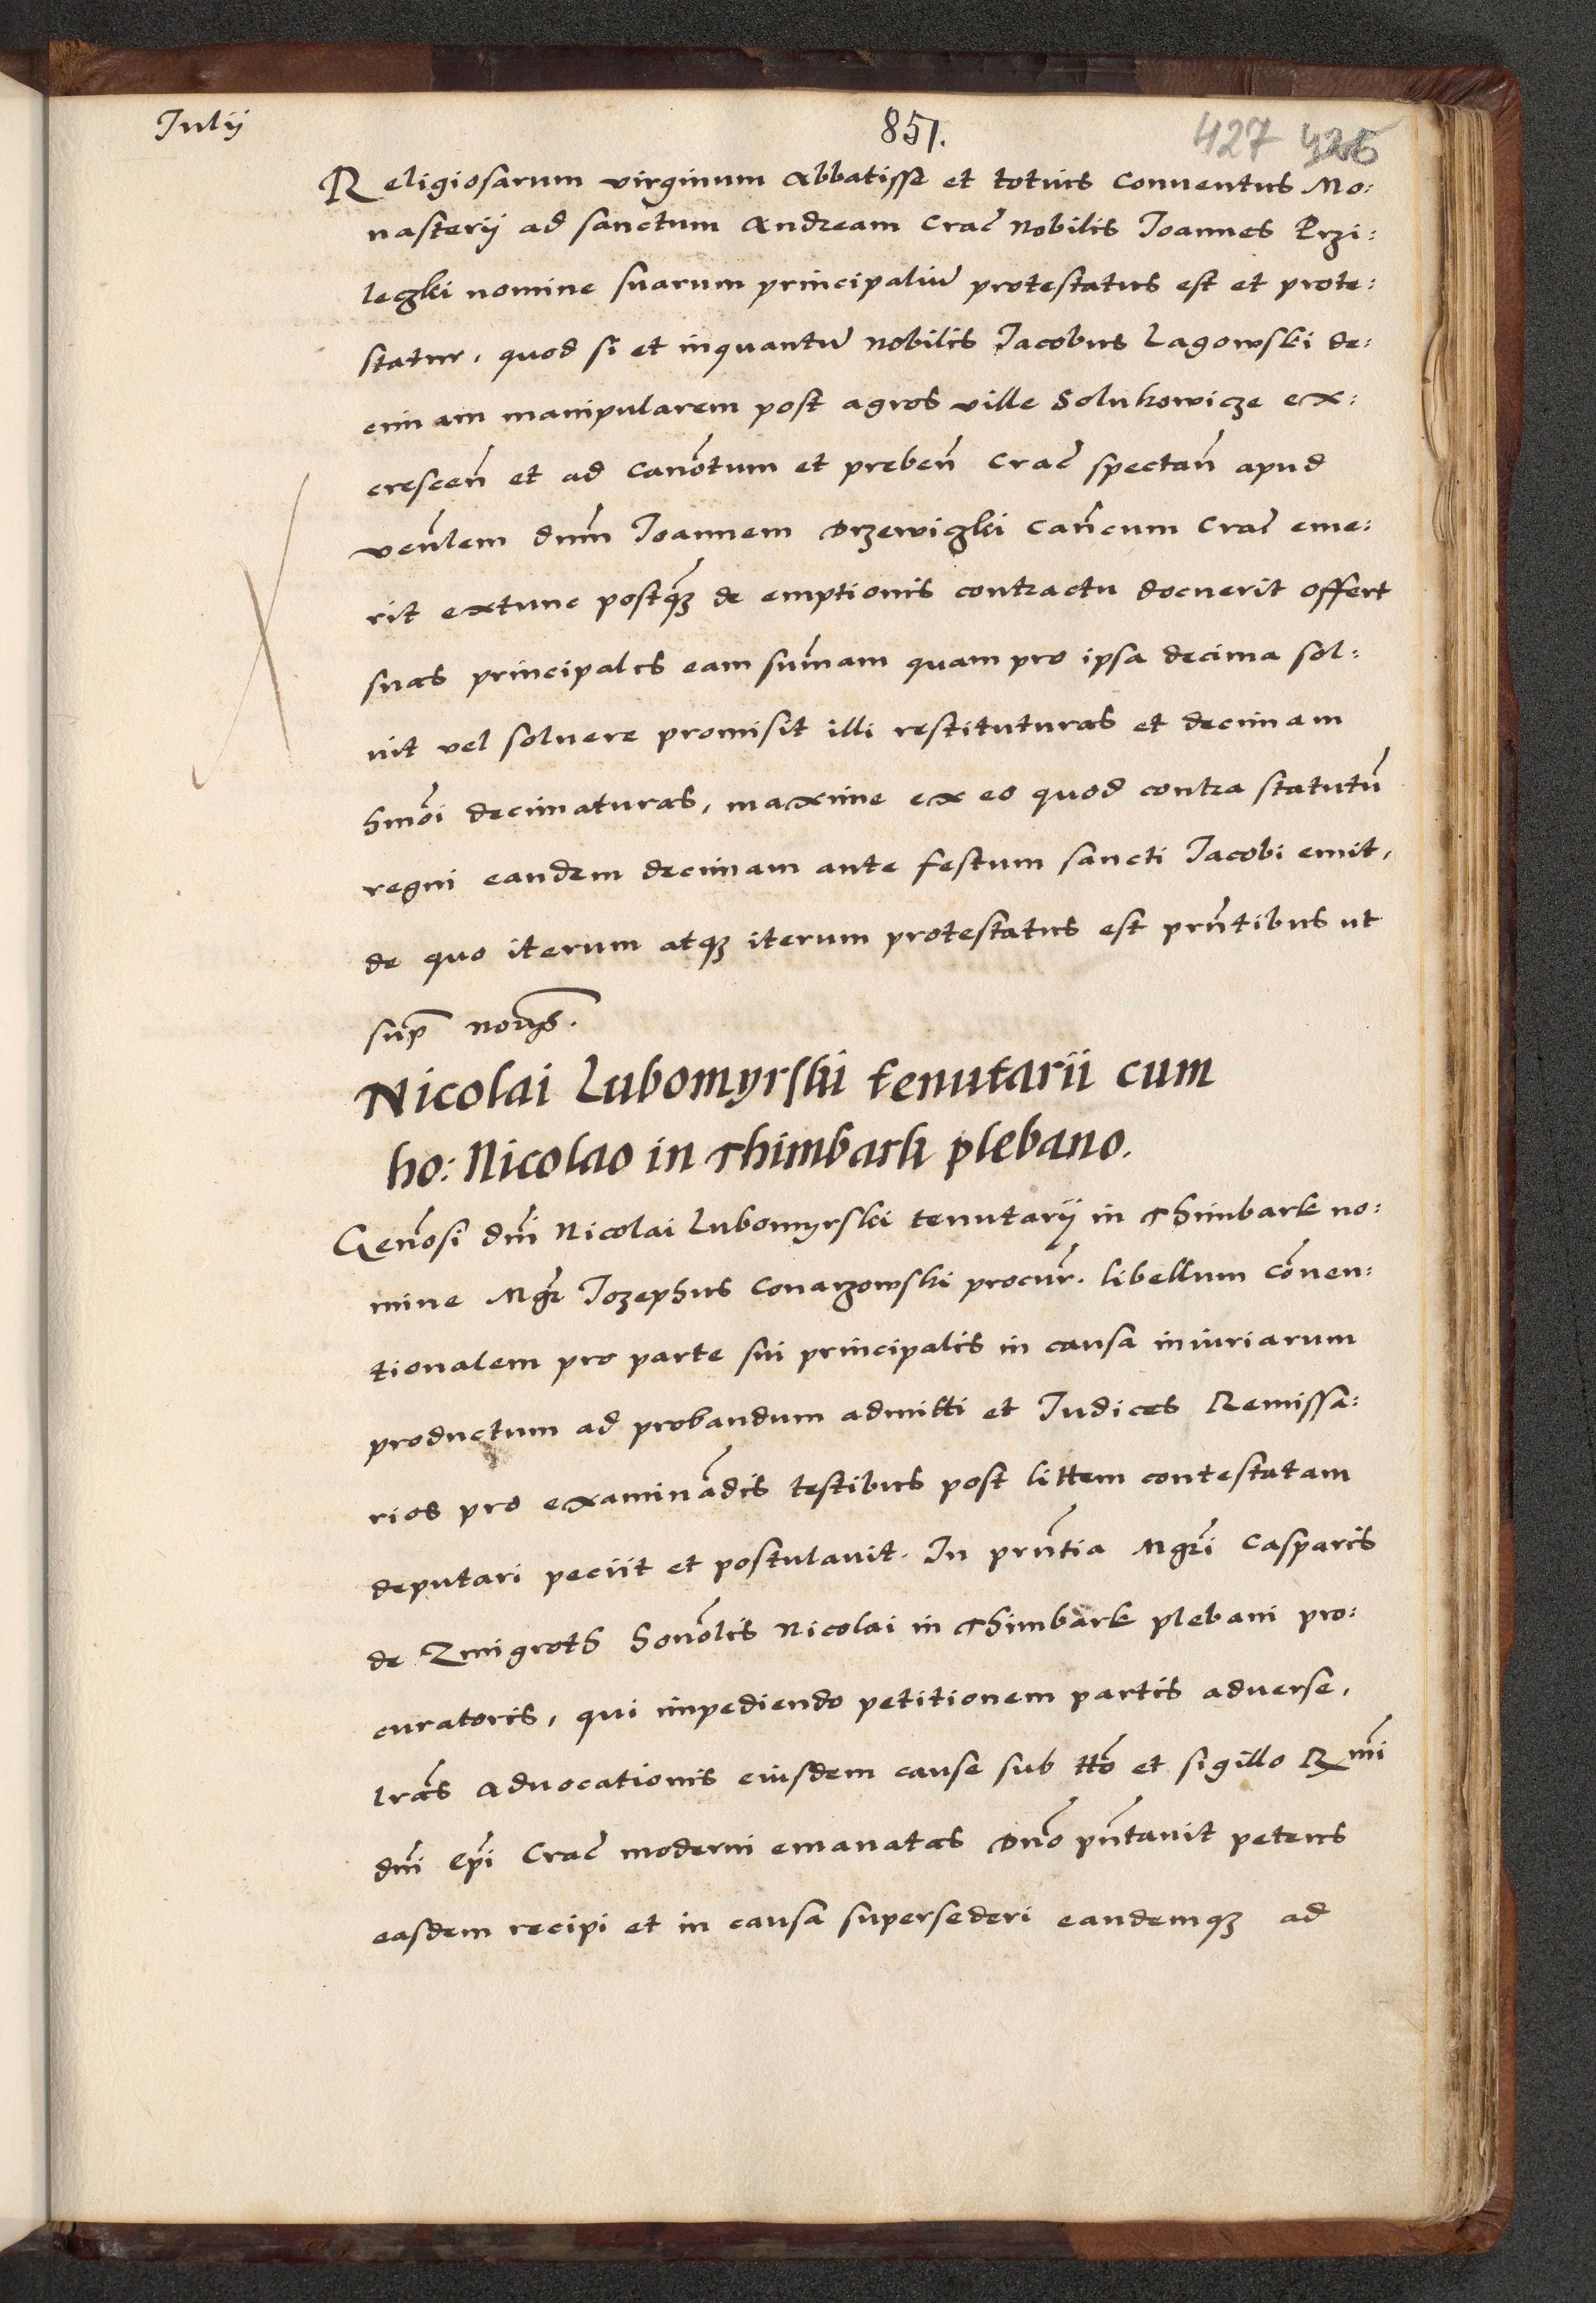 Julii
851.
427 426
Religiosarum virginum Abbatisse et totius Conventus Mo:
nasterij ad sanctum Andream Crac̃ Nobilis Joannes Przi:
leczki nomine suarum principaliũ protestatus est et prote:
statur, quod si et inquantũ Nobilis Jacobus Lagowski de:
cimam manipularem post agros ville Solukowicze ex:
crescen̄ et ad Canōtum et preben̄ Crac̃ spectan̄ apud
vēnlem dnm̄ Joannem Drzewiczki Can̄cum Crac̃ eme:
rit extunc postq̃ꝫ de emptionis contractu docuerit offert
suas principales eam sum̄am quam pro ipsa decima sol:
uit vel soluere promisit illi restituturas et decimam
hmōi decimaturas, maxime ex eo quod contra statutũ
regni eandem decimam ante festum sancti Jacobi emit,
de quo iterum atqꝫ iterum protestatus est prñtibus ut
sup̄
Nicolai Lubomyrski tenutarii cum
ho: Nicolao in Thimbark plebano.
Genōsi dnī Nicolai Lubomyrski tenutarij in Thimbark no:
mine Mgr̃ Jozephus Conarzowski procur̃. libellum cōnven:
tionalem pro parte sui principalis in causa iniuriarum
productum ad probandum admitti et Judices Remissa:
rios pro examinādis testibus post littem contestatam
deputari peciit et postulavit. In prñtia Mgr̃i Casparis
de Zmigroth honōlis Nicolai in Thimbark plebani pro:
curatoris, qui impediendo petitionem partis adverse,
lrās Advocationis eiusdem cause sub ttō et sigillo Rmī
dnī Epī Crac̃ moderni emanatas Dnō pñtavit petens
easdem recipi et in causa supersederi eandemqꝫ ad